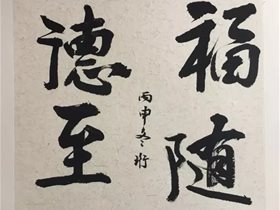 福随
德至
丙申冬